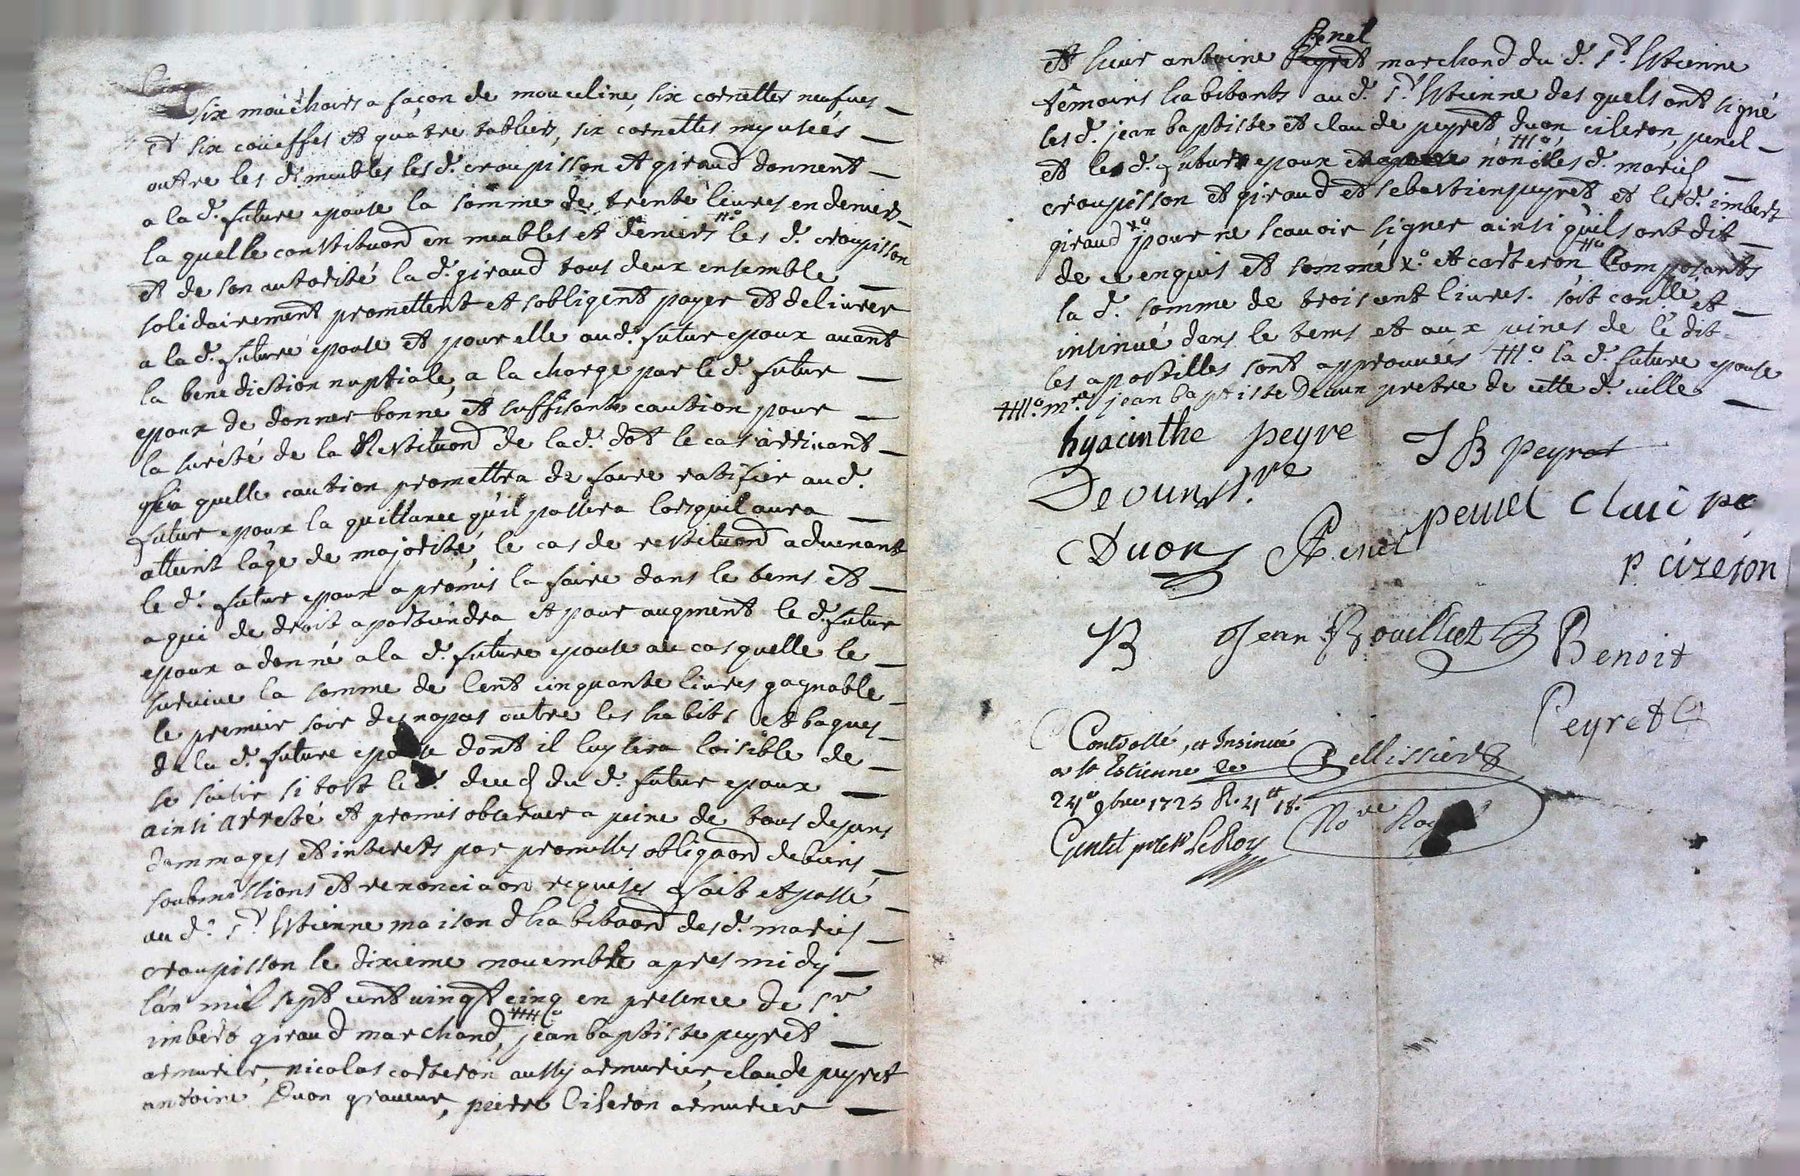 six mouchoirs a façon de mouceline, six cornettes neufves
et six coueffes et quatre tabliers, six cornettes my usées
outre les d. meubles les d. croupisson et giraud donnent
a la d. future epouse la somme de trente livres en deniers
la quelle constituaon en meubles et deniers les d. croupisson
et de son autorité la d. giraud tous deux ensemble
solidairement promettent et sobligent payer et delivrer
a la d. future epouse et pour elle aud. futur epoux avant
la benediction nuptiale, a la charge par le d. futur
epoux de donner bonne et suffisante caution pour
la sureté de la Restituaon de la d. dot le cas arrivant
la quelle caution promettra de faire ratifier aud.
futur epoux la quittance qu'il passera lorsquil aura
atteint l'age de majorité, le cas de restituaon advenant
le d. futur epoux a promis la faire dans le tems et
a qui de droit apartiendra et pour augment le d. futur
epoux a donné a la d. future epouse au cas quelle le
survive la somme de cent cinquante livres gagnable
le premier soir des nopces outre les habits et bagues
de la d. future epouse dont il luy sera loisible de
se saisir si tost le d. deceds du d. futur epoux
ainsi arresté et promis observer a peine de tous depens
dommages et interets par promesses obligaon de biens
soubmissions et renonciaon requises fait et passé
au d. St Estienne maison d'habitaon des d. mariés
croupisson le dixieme novembre apres midy
l'an mil sept cent vingt cinq en presence de Sr
imbert giraud marchand, jean baptiste peyret
armurier, nicolas carteron aussy armurier, claude peyret
antoine Duon graveur, pierre Cizeron armurier
et sieur antoine penel marchand du d. St Estienne
témoins habitants aud. St Estienne des quels ont signé
les d. jean baptiste et claude peyret duon cizeron, penel
et les d. futurs epoux non les d. mariés
croupisson et giraud et sebastien peyret et les d. imbert
giraud x° pour ne scavoir signer ainsi qu'ils ont dit
de ce enquis et sommé x° et carteron Composants
la d. somme de trois cent livres. soit conllé et
insinué dans le tems et aux peines de l'édit
les apostilles sont approuvées la d. future epouse
mre jean baptiste Deoun pretre de cette d. ville
hyacinthe peyre J B peyret
Deoun ptre
Duon A Penel penel Claude pe
P. cizeron
B Jean Rouilliet Benoit
Peyret
Controllé, et Insinué
a St Estienne le Pellissier
24e 9bre 1725 R. 4tt 18s
Gentil Le Roy No re Roy